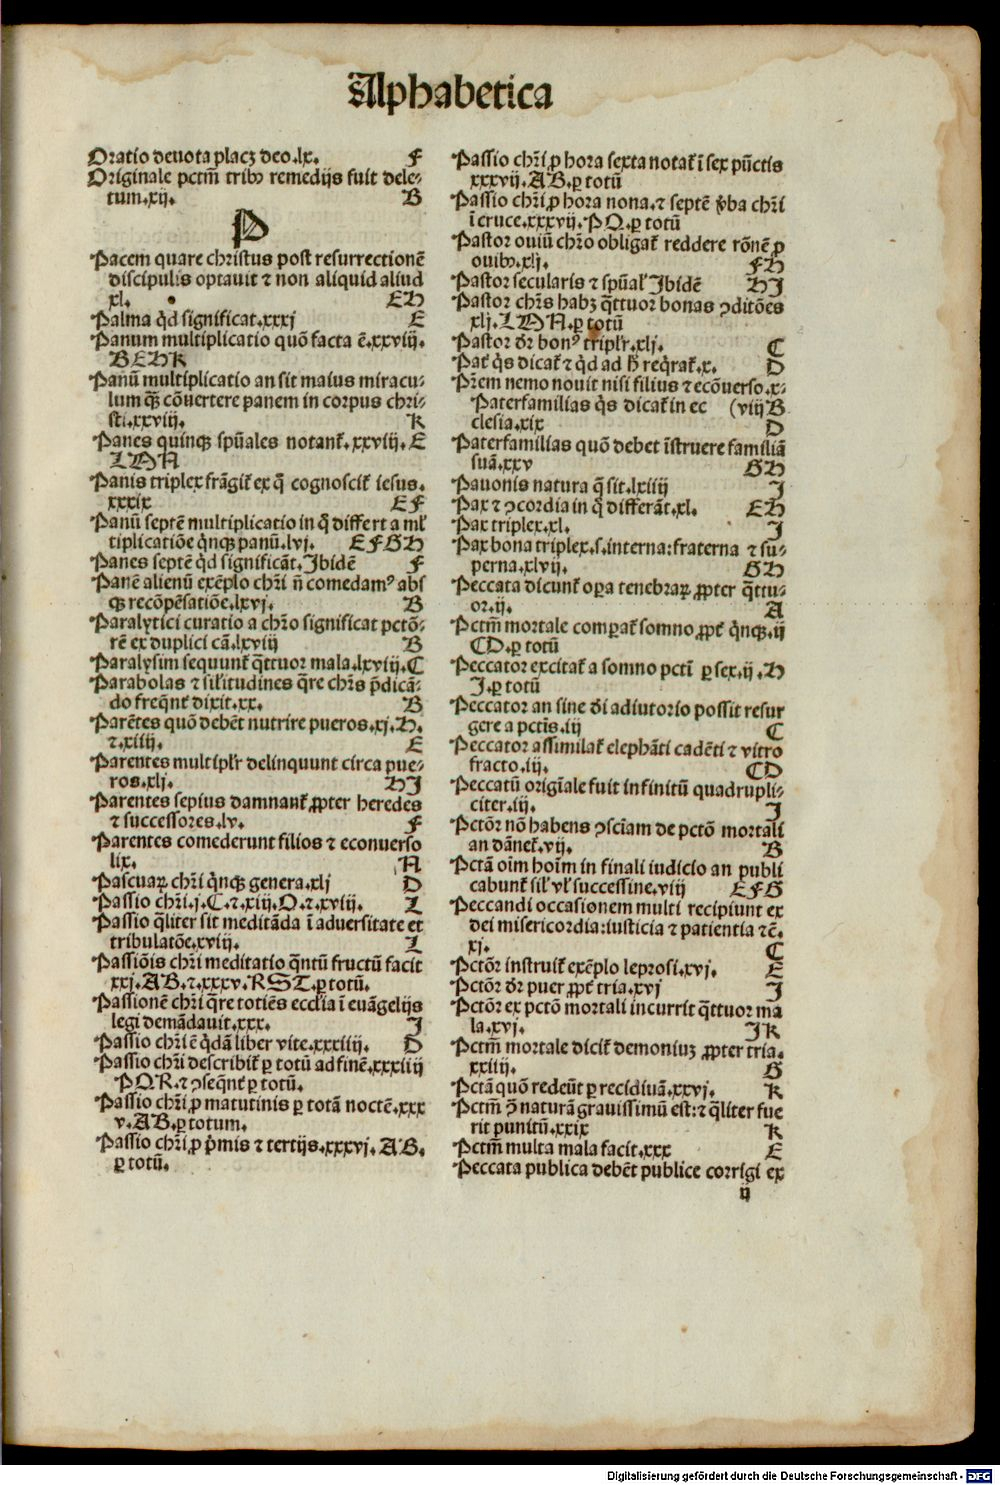 Alphabetica
Oratio deuota placꝫ deo.lx. F
Originale pctm̄ tribꝰ remedijs fuit dele-
tum.xij. B
P
Pacem quare christus post resurrectionē
discipulis optauit ⁊ non aliquid aliud
xl. E H
Palma q̇d significat.xxxj E
Panum multiplicatio quō facta ē.xxviij.
B E H K
Panū multiplicatio an sit maius miracu-
lum q̄ꝫ cōuertere panem in corpus chri-
sti.xxviij. K
Panes quinqꝫ spūales notant̄.xxviij. E
L M N
Panis triplex frāgit̄ ex q̄ cognoscit̄ iesus.
xxxix E F
Panū septē multiplicatio in q̄ differt a ml̄
tiplicatiōe q̇nqꝫ panū.lvj. E F G H
Panes septē q̇d significāt.Ibidē F
Panē alienū exēplo chr̄i n̄ comedamꝰ abs
qꝫ recōpēsatiōe.lxvj. B
Paralytici curatio a chr̄o significat pctō-
rē ex duplici cā.lxviij B
Paralysim sequunt̄ q̄ttuor mala.lxviij.C
Parabolas ⁊ sil̄itudines q̄re chr̄s p̄dicā-
do freq̄nt̄ dixit.xx. B
Parētes quō debēt nutrire pueros.xj.H.
⁊.xiiij. E
Parentes multipl̄r delinquunt circa pue-
ros.xlj. H I
Parentes sepius damnant̄ ꝓpter heredes
⁊ successores.lv. F
Parentes comederunt filios ⁊ econuerso
lix. N
Pascuaꝝ chr̄i q̇nqꝫ genera.xlj D
Passio chr̄i.j.C.⁊.xiij.O.⁊.xviij. L
Passio q̄liter sit meditāda ī aduersitate et
tribulatōe.xviij. L
Passiōis chr̄i meditatio q̄ntū fructū facit
xxj.A B.⁊.xxxv.R S T.ꝑ totū.
Passionē chr̄i q̄re totiēs ecclīa ī euāgelijs
legi demādauit.xxx. I
Passio chr̄i ē q̇dā liber vite.xxxiiij. D
Passio chr̄i describit̄ ꝑ totū ad finē.xxxiiij
P Q R.⁊ ꝯseq̄nt̄ ꝑ totū.
Passio chr̄i ꝓ matutinis ꝑ totā noctē.xxx
v.A B.ꝑ totum.
Passio chr̄i ꝓ p̄mis ⁊ tertijs.xxxvj.A B.
ꝑ totū.
Passio chr̄i ꝓ hora sexta notat̄ ī sex pūctis
xxxvij.A B.ꝑ totū
Passio chr̄i ꝓ hora nona.⁊ septē v̓ba chr̄i
ī cruce.xxxvij.P Q.ꝑ totū
Pastor ouiū chr̄o obligat̄ reddere rōnē ꝓ
ouibꝰ.xlj. F H
Pastor secularis ⁊ spūal̄ Ibidē H I
Pastor chr̄s habꝫ q̄ttuor bonas ꝯditōes
xlj.L M N.ꝑ totū
Pastor dr̄ bonꝰ tripl̄r.xlj. C
Pat̄ q̇s dicat̄ ⁊ q̇d ad h̄ req̇rat̄.x. D
Pr̄em nemo nouit nisi filius ⁊ ecōuerso.x-
Paterfamilias q̇s dicat̄ in ec (viij B
clesia.xix D
Paterfamilias quō debet īstruere familiā
suā.xxv G H
Pauonis natura q̄ sit.lxiiij I
Pax ⁊ ꝯcordia in q̄ differāt.xl. E H
Pax triplex.xl. I
Pax bona triplex.s.interna:fraterna ⁊ su-
perna.xlvij. G H
Peccata dicunt̄ oꝑa tenebraꝝ ꝓpter q̄ttu-
or.ij. A
Pctm̄ mortale comꝑat̄ somno ꝓpt̄ q̇nqꝫ.ij
C D.ꝑ totū
Peccator excitat̄ a somno pcti ꝑ sex.ij.H
I.ꝑ totū
Peccator an sine dei adiutorio possit resur
gere a pctīs.iij C
Peccator assimilat̄ elephāti cadēti ⁊ vitro
fracto.iij. C D
Peccatū orīgale fuit infinitū quadrupli-
citer.iij. I
Pctōr nō habens ꝯscīam de pctō mortali
an dānet̄.vij. B
Pctā oīm hoīm in finali iudicio an publi
cabunt̄ sil̄ vl̄ successiue.viij E F G
Peccandi occasionem multi recipiunt ex
dei misericordia:iusticia ⁊ patientia ⁊c̄.
xj. C
Pctōr instruit̄ exēplo leprosi.xvj. E
Pctōr dr̄ puer ꝓpt̄ tria.xvj I
Pctōr ex pctō mortali incurrit q̄ttuor ma
la.xvj. I K
Pctm̄ mortale dicit̄ demoniuꝫ ꝓpter tria.
xxiij. G
Pctā quō redeūt ꝑ recidiuā.xxvj. K
Pctm̄ ꝯ̄ naturā grauissimū est:⁊ q̄liter fue
rit punitū.xxix K
Pctm̄ multa mala facit.xxx E
Peccata publica debēt publice corrigi ex
ij
Digitalisierung gefördert durch die Deutsche Forschungsgemeinschaft - DFG